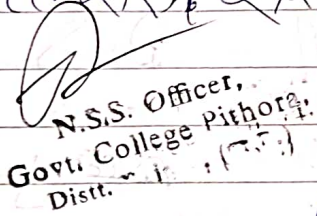 N.S.S. Officer,
Govt. College Pithora,
Distt.